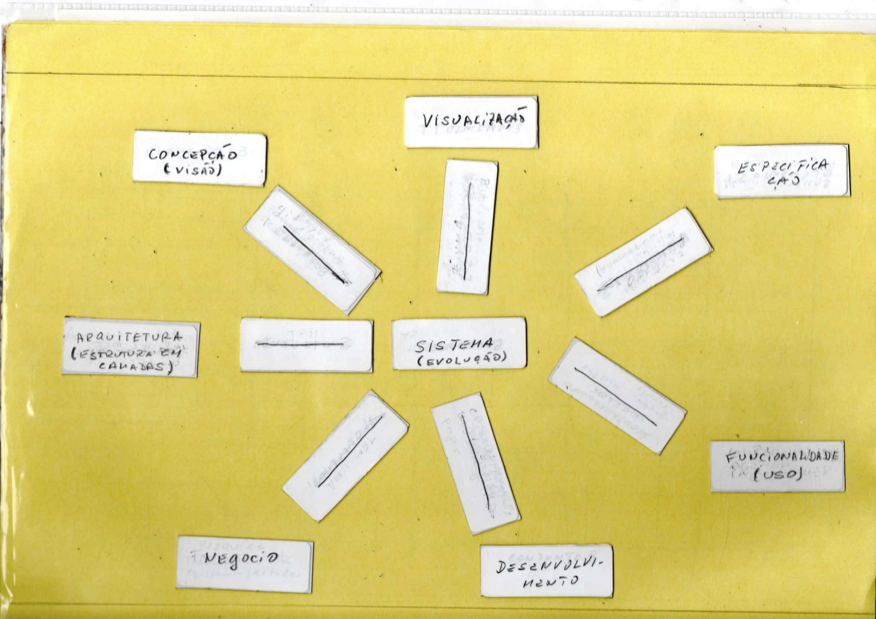 VISUALIZAÇÃO
CONCEPÇÃO
(VISÃO)
ESPECIFICA
ÇÃO
ARQUITETURA
(ESTRUTURA EM
CAMADAS)
SISTEMA
(EVOLUÇÃO)
FUNCIONALIDADE
(USO)
NEGOCIO
DESENVOLVI-
MENTO